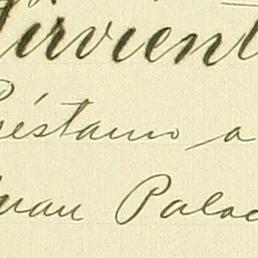 Sirvient
Préstamo a
Juan Palac